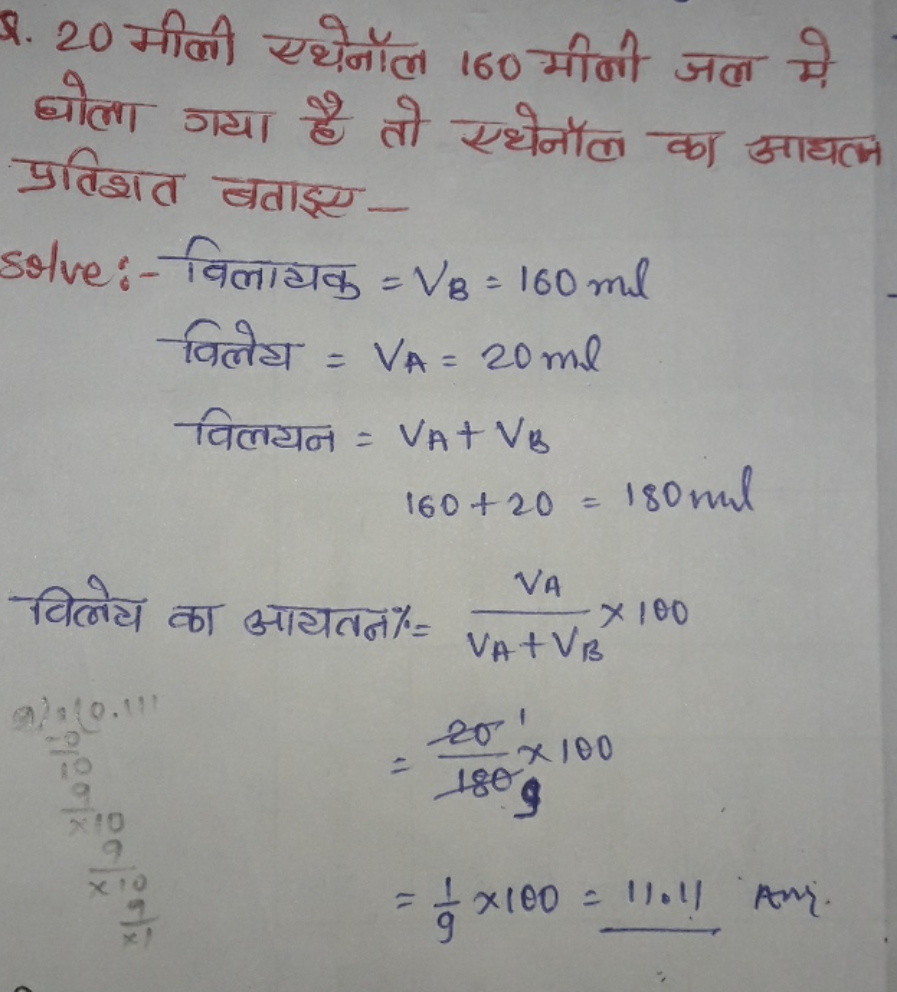 Q. 20 मीली एथेनॉल 160 मीली जल मे
घोला गया है तो एथेनॉल का आयतन
प्रतिशत बताइए –
Solve :- विलायक = VB = 160 ml
विलेय = VA = 20 ml
विलयन = VA + VB
160 + 20 = 180 ml
विलेय का आयतन% = VA / VA + VB × 100
= 20 1 / 180 9 × 100
= 1/9 × 100 = 11.11 Ans.
9)1(0.111
-0
10
9
×10
9
×10
9
×1